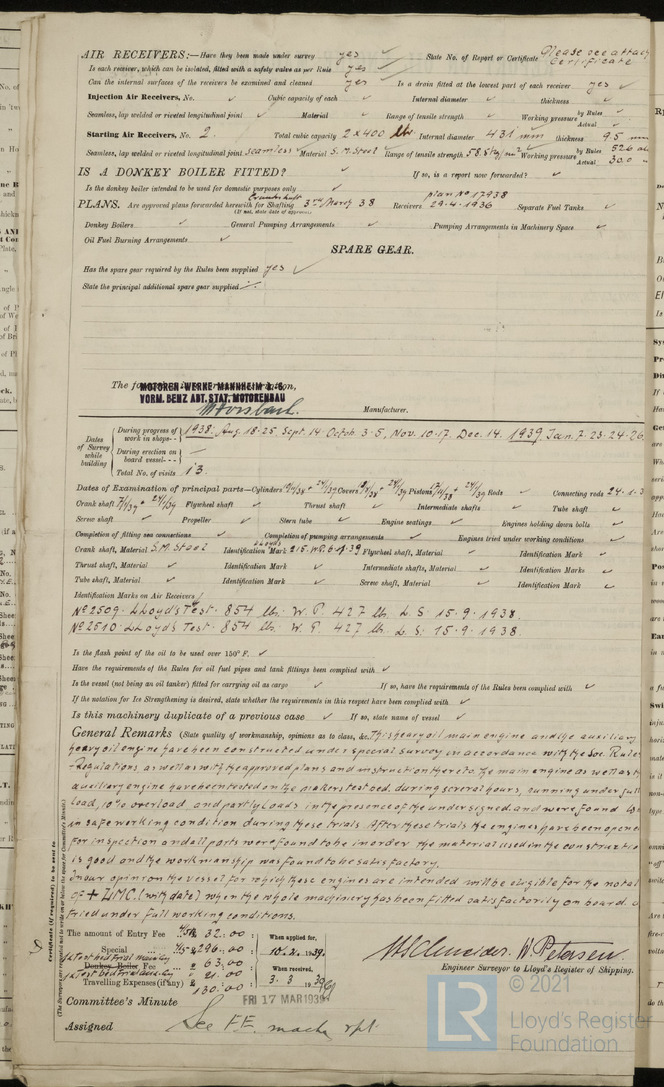 AIR RECEIVERS:—Have they been made under survey yes ✓ State No. of Report or Certificate Please see attach Certificate
Is each receiver, which can be isolated, fitted with a safety valve as per Rule yes ✓
Can the internal surfaces of the receivers be examined and cleaned yes Is a drain fitted at the lowest part of each receiver yes ✓
Injection Air Receivers, No. ✓ Cubic capacity of each ✓ Internal diameter ✓ thickness ✓
Seamless, lap welded or riveted longitudinal joint ✓ Material ✓ Range of tensile strength ✓ Working pressure by Rules ✓ Actual ✓
Starting Air Receivers, No. 2. Total cubic capacity 2 x 400 Internal diameter 431 mm thickness 9.5 mm
Seamless, lap welded or riveted longitudinal joint seamless Material S.M. Steel Range of tensile strength 58.5 kg/mm² Working pressure by Rules 526 Actual 300
IS A DONKEY BOILER FITTED? ✓ If so, is a report now forwarded? ✓
Is the donkey boiler intended to be used for domestic purposes only ✓
PLANS. Are approved plans forwarded herewith for Shafting Crankshaft 3rd March 38 Receivers plan No 17938 29.4.1936 Separate Fuel Tanks ✓
(If not, state date of approval)
Donkey Boilers ✓ General Pumping Arrangements ✓ Pumping Arrangements in Machinery Space ✓
Oil Fuel Burning Arrangements ✓
SPARE GEAR.
Has the spare gear required by the Rules been supplied yes ✓
State the principal additional spare gear supplied
The
MOTOREN-WERKE MANNHEIM A.G.
VORM. BENZ ABT. STAT. MOTORENBAU
Manufacturer.
Dates of Survey while building
During progress of work in shops-- 1938: Aug. 18-25 Sept. 14 Octob. 3-5, Nov. 10-17. Dec. 14. 1939. Jan. 7. 23-24-26
During erection on board vessel--- —
Total No. of visits 13.
Dates of Examination of principal parts—Cylinders Covers Pistons Rods ✓ Connecting rods 24.1.3
Crank shaft Flywheel shaft ✓ Thrust shaft ✓ Intermediate shafts ✓ Tube shaft ✓
Screw shaft ✓ Propeller ✓ Stern tube ✓ Engine seatings ✓ Engines holding down bolts ✓
Completion of fitting sea connections ✓ Completion of pumping arrangements ✓ Engines tried under working conditions ✓
Crank shaft, Material S.M. Steel Identification Mark Lloyds 215. W.P. Flywheel shaft, Material ✓ Identification Mark ✓
Thrust shaft, Material ✓ Identification Mark ✓ Intermediate shafts, Material ✓ Identification Marks ✓
Tube shaft, Material ✓ Identification Mark ✓ Screw shaft, Material ✓ Identification Mark ✓
Identification Marks on Air Receivers
No 2509. Lloyd's Test. 854 lbs. W.P. 427 lbs. L.S. 15.9.1938.
No 2510. Lloyd's Test. 854 lbs. W.P. 427 lbs. L.S. 15.9.1938.
Is the flash point of the oil to be used over 150° F. ✓
Have the requirements of the Rules for oil fuel pipes and tank fittings been complied with ✓
Is the vessel (not being an oil tanker) fitted for carrying oil as cargo ✓ If so, have the requirements of the Rules been complied with ✓
If the notation for Ice Strengthening is desired, state whether the requirements in this respect have been complied with ✓
Is this machinery duplicate of a previous case ✓ If so, state name of vessel ✓
General Remarks (State quality of workmanship, opinions as to class, &c. This heavy oil main engine and the auxiliary
heavy oil engine have been constructed under special survey in accordance with the Soc. Rules
& Regulations as well as with the approved plans and instruction thereto. The main engine as well as th
auxiliary engine have been tested on the makers test bed, during several hours, running under full
load, 10% overload, and partly loads in the presence of the undersigned, and were found to be
in safe working condition during these trials. After these trials the engines have been opene
for inspection and all parts were found to be in order. The material used in the constructio
is good and the workmanship was found to be satisfactory.
In our opinion the vessel for which these engines are intended will be eligible for the notat
of + LMC. (with date) when the whole machinery has been fitted satisfactorily on board &
tried under full working conditions.
The amount of Entry Fee 32.00: When applied for,
Special £296.00 10.2.1939.
Test bed trial main Eng
Donkey Boiler Fee £ 63.00 When received,
Test bed trial aux. Eng 21.00 3.3.1939
Travelling Expenses (if any) £ 130.00
W. Petersen.
Engineer Surveyor to Lloyd's Register of Shipping.
Committee's Minute FRI 17 MAR 1939
Assigned See F.E. mach. rpt.
Certificate (if required) to be sent to
(The Surveyors are requested not to write on or below the space for Committee's Minute.)
© 2021
LR
Lloyd's Register
Foundation